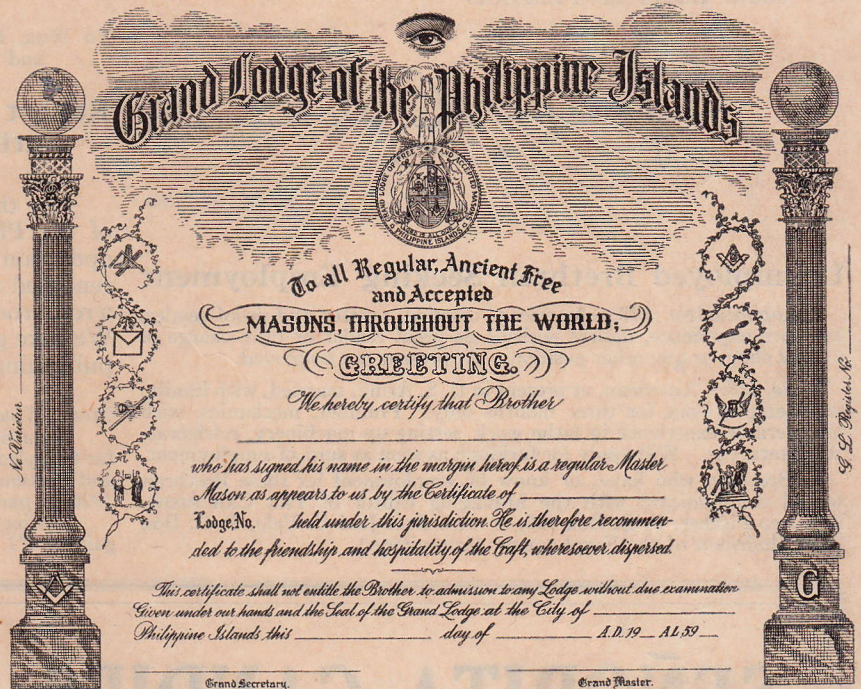 Grand Lodge of the Philippine Islands
GRAND LODGE OF FREE AND ACCEPTED MASONS
PHILIPPINE ISLANDS
To all Regular, Ancient Free
and Accepted
MASONS, THROUGHOUT THE WORLD;
GREETING.
We hereby certify that Brother
who has signed his name in the margin hereof is a regular Master
Mason as appears to us by the Certificate of
Lodge, No. held under this jurisdiction. He is therefore recommen-
ded to the friendship and hospitality of the Craft, wheresoever dispersed.
This certificate shall not entitle the Brother to admission to any Lodge without due examination
Given under our hands and the Seal of the Grand Lodge at the City of
Philippine Islands this day of A.D. 19 A L 59
Grand Secretary.
Grand Master.
Ne Varietur
G. L. Register No.
G
G